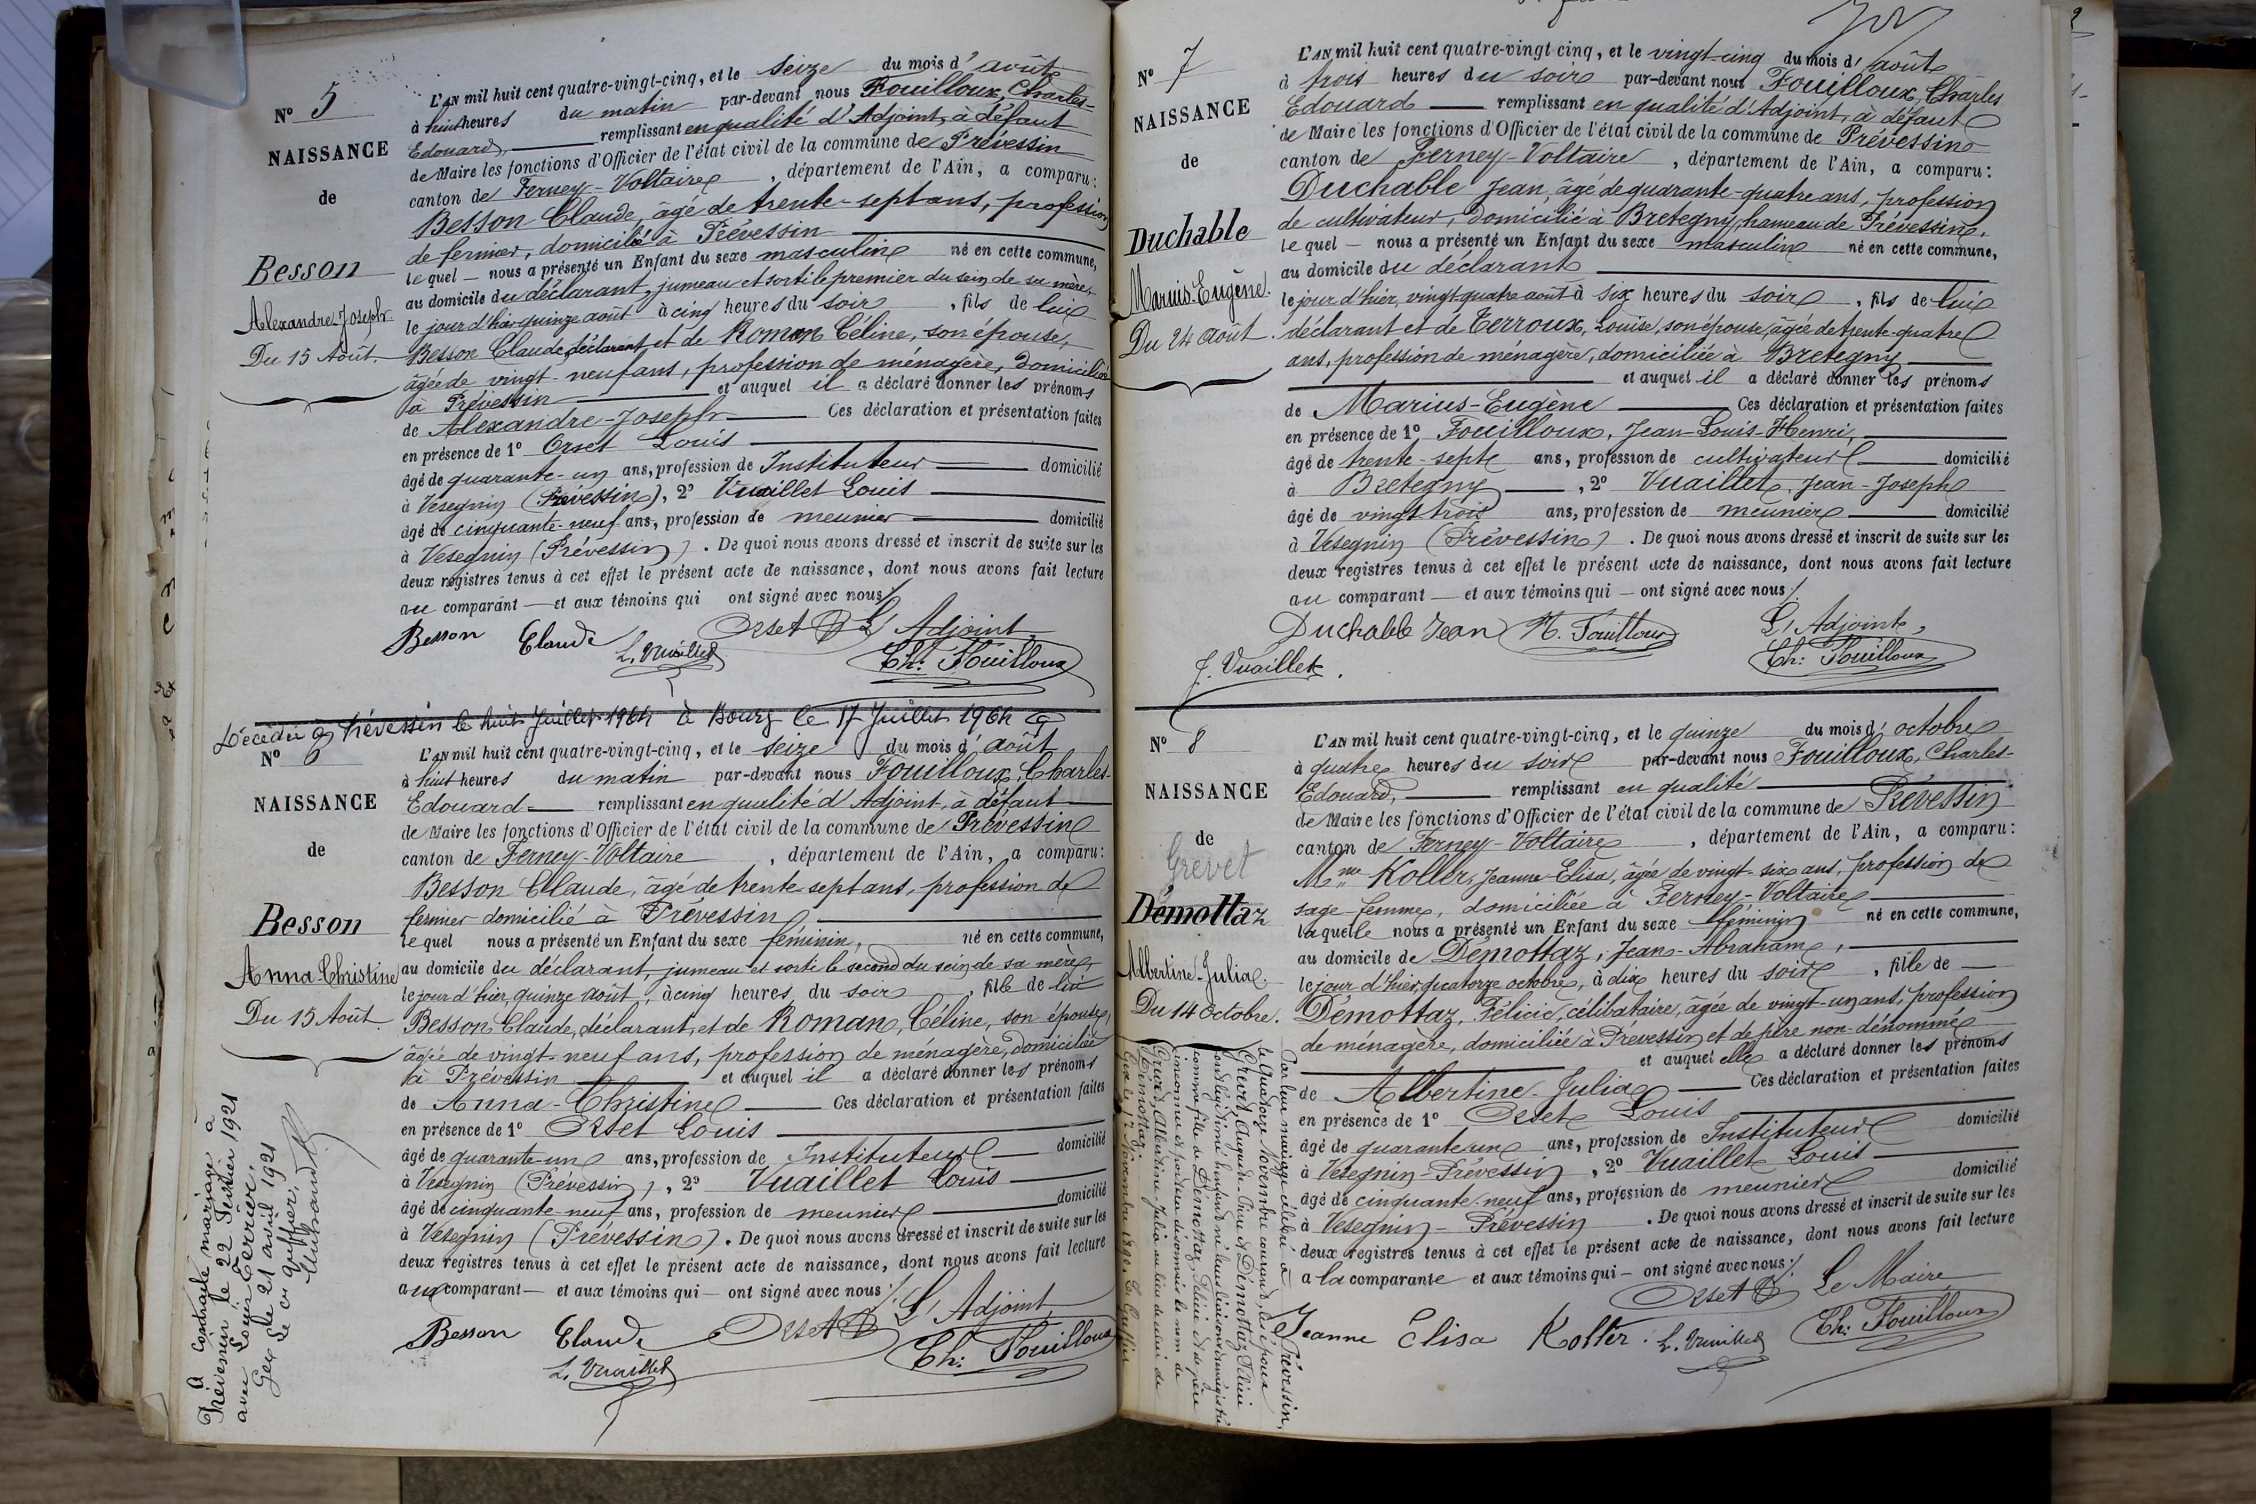 N° 5
NAISSANCE
de
Besson
Alexandre-Joseph
Du 15 Août.
L'AN mil huit cent quatre-vingt-cinq, et le seize du mois d'août
à huit heures du matin par-devant nous Fouilloux, Charles-
Edouard, remplissant en qualité d'Adjoint, à défaut
de Maire les fonctions d'Officier de l'état civil de la commune de Prévessin
canton de Ferney-Voltaire, département de l'Ain, a comparu:
Besson Claude, âgé de trente-sept ans, profession
de fermier, domicilié à Prévessin
lequel — nous a présenté un Enfant du sexe masculin né en cette commune,
au domicile du déclarant, jumeau et sorti le premier du sein de sa mère,
le jour d'hier quinze août à cinq heures du soir, fils de lui
Besson Claude, déclarant et de Roman Céline, son épouse,
âgée de vingt-neuf ans, profession de ménagère, domiciliée
à Prévessin et auquel il a déclaré donner les prénoms
de Alexandre-Joseph Ces déclaration et présentation faites
en présence de 1° Orset Louis
âgé de quarante-un ans, profession de Instituteur domicilié
à Vesegnin (Prévessin), 2° Vuaillet Louis
âgé de cinquante-neuf ans, profession de meunier domicilié
à Vesegnin (Prévessin). De quoi nous avons dressé et inscrit de suite sur les
deux registres tenus à cet effet le présent acte de naissance, dont nous avons fait lecture
au comparant — et aux témoins qui ont signé avec nous
Besson Claude Orset L'Adjoint,
L. Vuaillet Ch: Fouilloux
Décédée à Prévessin le huit Juillet 1964 à Bourg le 17 Juillet 1964
N° 6
NAISSANCE
de
Besson
Anna-Christine
Du 15 Août.
L'AN mil huit cent quatre-vingt-cinq, et le seize du mois d'août
à huit heures du matin par-devant nous Fouilloux, Charles-
Edouard remplissant en qualité d'Adjoint, à défaut
de Maire les fonctions d'Officier de l'état civil de la commune de Prévessin
canton de Ferney-Voltaire, département de l'Ain, a comparu:
Besson Claude, âgé de trente-sept ans, profession de
fermier domicilié à Prévessin
lequel nous a présenté un Enfant du sexe féminin, né en cette commune,
au domicile du déclarant, jumeau et sorti le second du sein de sa mère,
le jour d'hier, quinze août, à cinq heures du soir, fille de lui
Besson Claude, déclarant, et de Roman, Céline, son épouse,
âgée de vingt-neuf ans, profession de ménagère, domiciliée
à Prévessin et auquel il a déclaré donner les prénoms
de Anna-Christine Ces déclaration et présentation faites
en présence de 1° Orset Louis
âgé de quarante-un ans, profession de Instituteur domicilié
à Vesegnin (Prévessin), 2° Vuaillet Louis
âgé de cinquante-neuf ans, profession de meunier domicilié
à Vesegnin (Prévessin). De quoi nous avons dressé et inscrit de suite sur les
deux registres tenus à cet effet le présent acte de naissance, dont nous avons fait lecture
au comparant — et aux témoins qui — ont signé avec nous
Besson Claude Orset L'Adjoint,
L. Vuaillet Ch: Fouilloux
A contracté mariage à
Prévessin le 22 Février 1921
avec Louis Terrier.
Gex le 21 avril 1921
Le greffier,
N° 7
NAISSANCE
de
Duchable
Marius-Eugène.
Du 24 août.
L'AN mil huit cent quatre-vingt cinq, et le vingt-cinq du mois d'août
à trois heures du soir par-devant nous Fouilloux, Charles
Edouard remplissant en qualité d'Adjoint, à défaut
de Maire les fonctions d'Officier de l'état civil de la commune de Prévessin
canton de Ferney-Voltaire, département de l'Ain, a comparu:
Duchable Jean, âgé de quarante-quatre ans, profession
de cultivateur, domicilié à Bretegny, hameau de Prévessin,
lequel — nous a présenté un Enfant du sexe masculin né en cette commune,
au domicile du déclarant
le jour d'hier, vingt quatre août à six heures du soir, fils de lui
déclarant et de Terroux, Louise, son épouse, âgée de trente-quatre
ans, profession de ménagère, domiciliée à Bretegny
et auquel il a déclaré donner les prénoms
de Marius-Eugène Ces déclaration et présentation faites
en présence de 1° Fouilloux, Jean-Louis-Henri,
âgé de trente-sept ans, profession de cultivateur domicilié
à Bretegny, 2° Vuaillet, Jean-Joseph
âgé de vingt trois ans, profession de meunier domicilié
à Vesegnin (Prévessin). De quoi nous avons dressé et inscrit de suite sur les
deux registres tenus à cet effet le présent acte de naissance, dont nous avons fait lecture
au comparant — et aux témoins qui — ont signé avec nous
Duchable Jean H. Fouilloux L'Adjoint,
J. Vuaillet. Ch: Fouilloux
N° 8
NAISSANCE
de
Grevet
Démottaz
Albertine-Julia.
Du 14 Octobre.
L'AN mil huit cent quatre-vingt-cinq, et le quinze du mois d'octobre
à quatre heures du soir par-devant nous Fouilloux, Charles-
Edouard, remplissant en qualité
de Maire les fonctions d'Officier de l'état civil de la commune de Prévessin
canton de Ferney-Voltaire, département de l'Ain, a comparu:
Mme Koller, Jeanne-Elisa, âgée de vingt-six ans, profession de
sage-femme, domiciliée à Ferney-Voltaire
laquelle nous a présenté un Enfant du sexe féminin né en cette commune,
au domicile de Démottaz, Jean-Abraham,
le jour d'hier, quatorze octobre, à dix heures du soir, fille de
Démottaz, Félicie, célibataire, âgée de vingt-un ans, profession
de ménagère, domiciliée à Prévessin et de père non-dénommé
et auquel elle a déclaré donner les prénoms
de Albertine-Julia Ces déclaration et présentation faites
en présence de 1° Orset Louis
âgé de quarante-un ans, profession de Instituteur domicilié
à Vesegnin-Prévessin, 2° Vuaillet Louis
âgé de cinquante-neuf ans, profession de meunier domicilié
à Vesegnin-Prévessin. De quoi nous avons dressé et inscrit de suite sur les
deux registres tenus à cet effet le présent acte de naissance, dont nous avons fait lecture
a la comparante et aux témoins qui — ont signé avec nous
Orset Le Maire
Jeanne Elisa Koller. L. Vuaillet Ch: Fouilloux
Par leur mariage célébré à Prévessin,
le quatorze Novembre courant, les époux